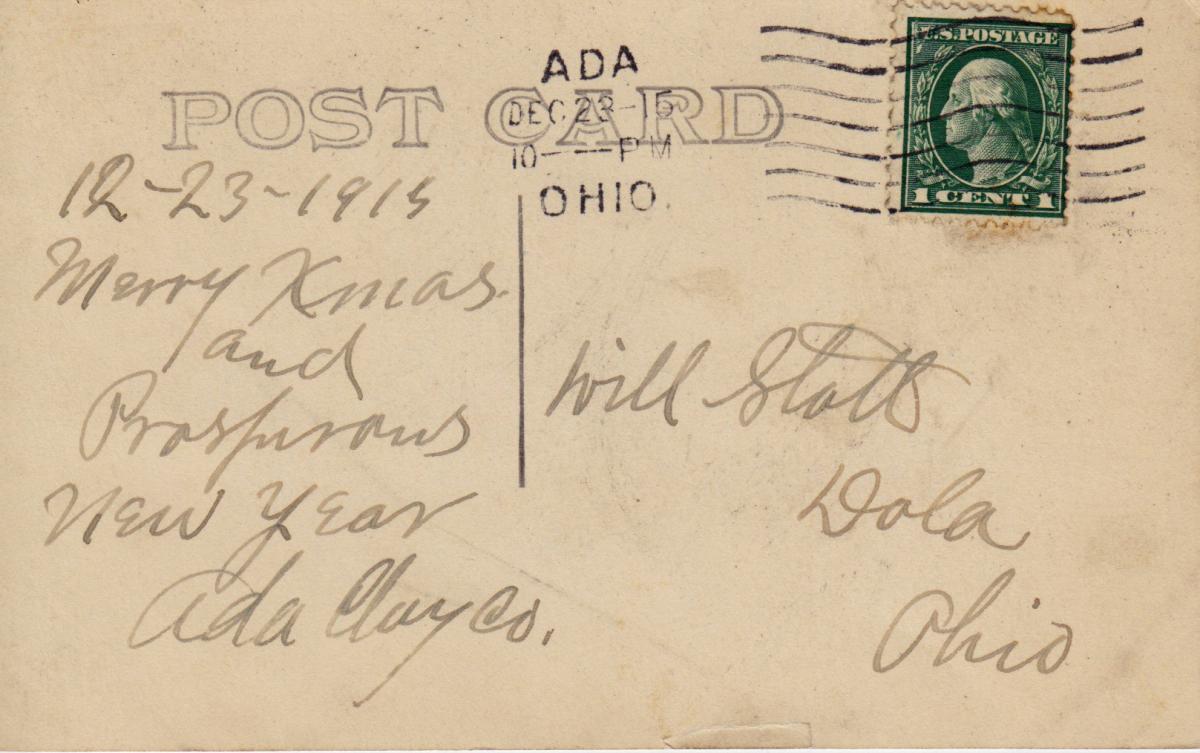 POST CARD
ADA
DEC 23-15
10 — PM
OHIO.
U.S. POSTAGE
1 CENT 1
12-23-1915
Merry Xmas.
and
Prosperous
New Year
Ada Clay Co.
Will Stott
Dola
Ohio